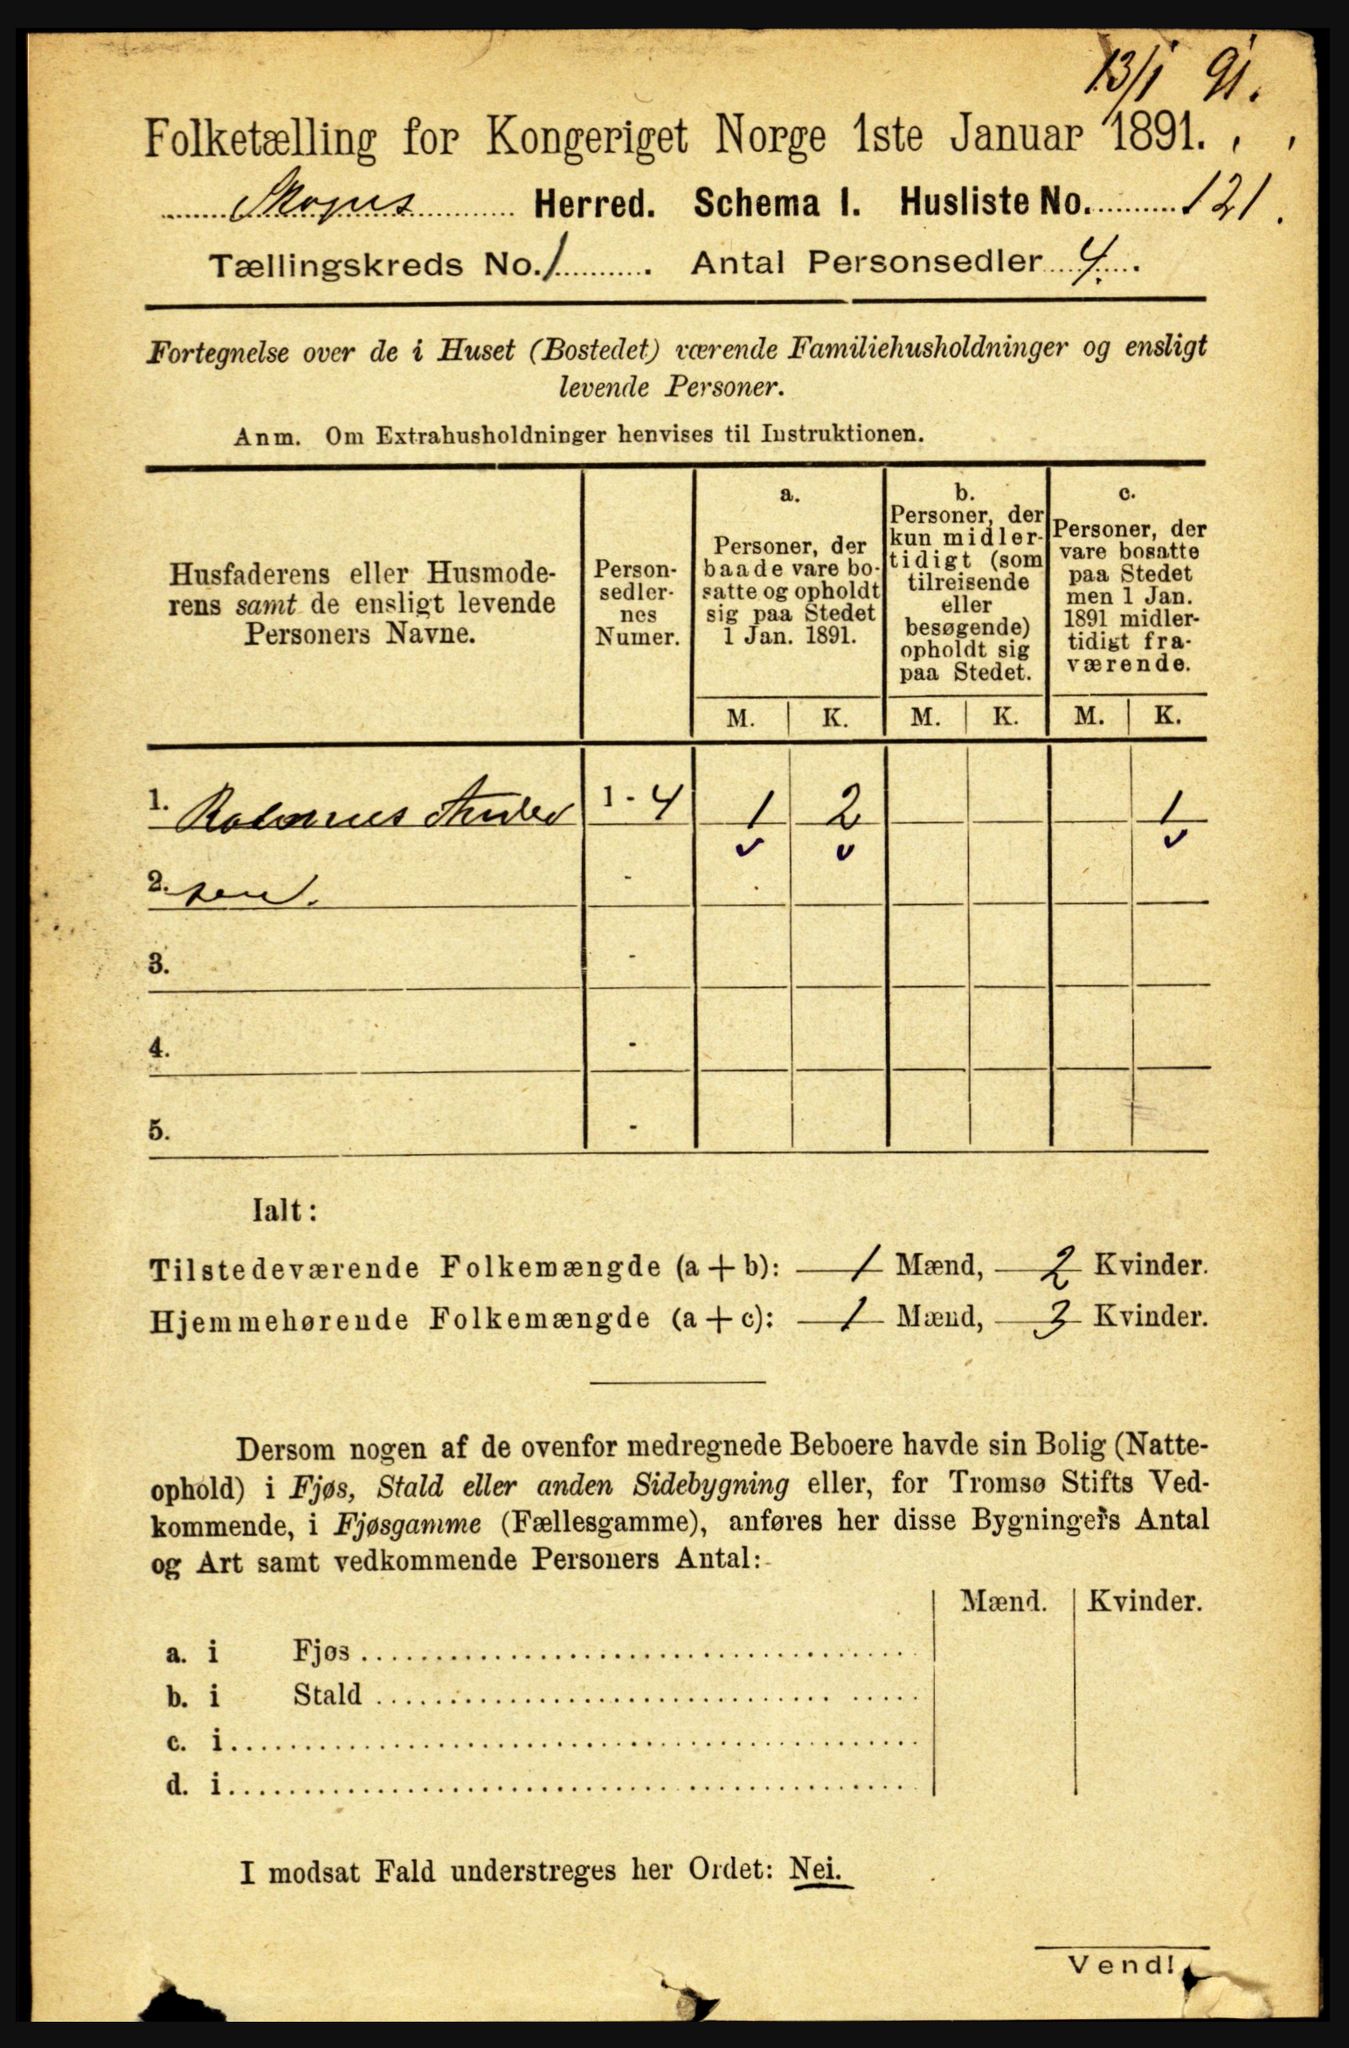 13/1 91.
Folketælling for Kongeriget Norge 1ste Januar 1891.
Herred. Schema I. Husliste No. 121.
Tællingskreds No. 1. Antal Personsedler 4.
Fortegnelse over de i Huset (Bostedet) værende Familiehusholdninger og ensligt
levende Personer.
Anm. Om Extrahusholdninger henvises til Instruktionen.
Husfaderens eller Husmode-
rens samt de ensligt levende
Personers Navne.
Person-
sedler-
nes
Numer.
a.
Personer, der
baade vare bo-
satte og opholdt
sig paa Stedet
1 Jan. 1891.
b.
Personer, der
kun midler-
tidigt (som
tilreisende
eller
besøgende)
opholdt sig
paa Stedet.
c.
Personer, der
vare bosatte
paa Stedet
men 1 Jan.
1891 midler-
tidigt fra-
værende.
M. K. M. K. M. K.
1. 1 - 4 1 2 1
2. sen. -
3. -
4. -
5. -
Ialt:
Tilstedeværende Folkemængde (a + b): 1 Mænd, 2 Kvinder.
Hjemmehørende Folkemængde (a + c): 1 Mænd, 3 Kvinder.
Dersom nogen af de ovenfor medregnede Beboere havde sin Bolig (Natte-
ophold) i Fjøs, Stald eller anden Sidebygning eller, for Tromsø Stifts Ved-
kommende, i Fjøsgamme (Fællesgamme), anføres her disse Bygningers Antal
og Art samt vedkommende Personers Antal:
Mænd. Kvinder.
a. i Fjøs
b. i Stald
c. i
d. i
I modsat Fald understreges her Ordet: Nei.
Vend!